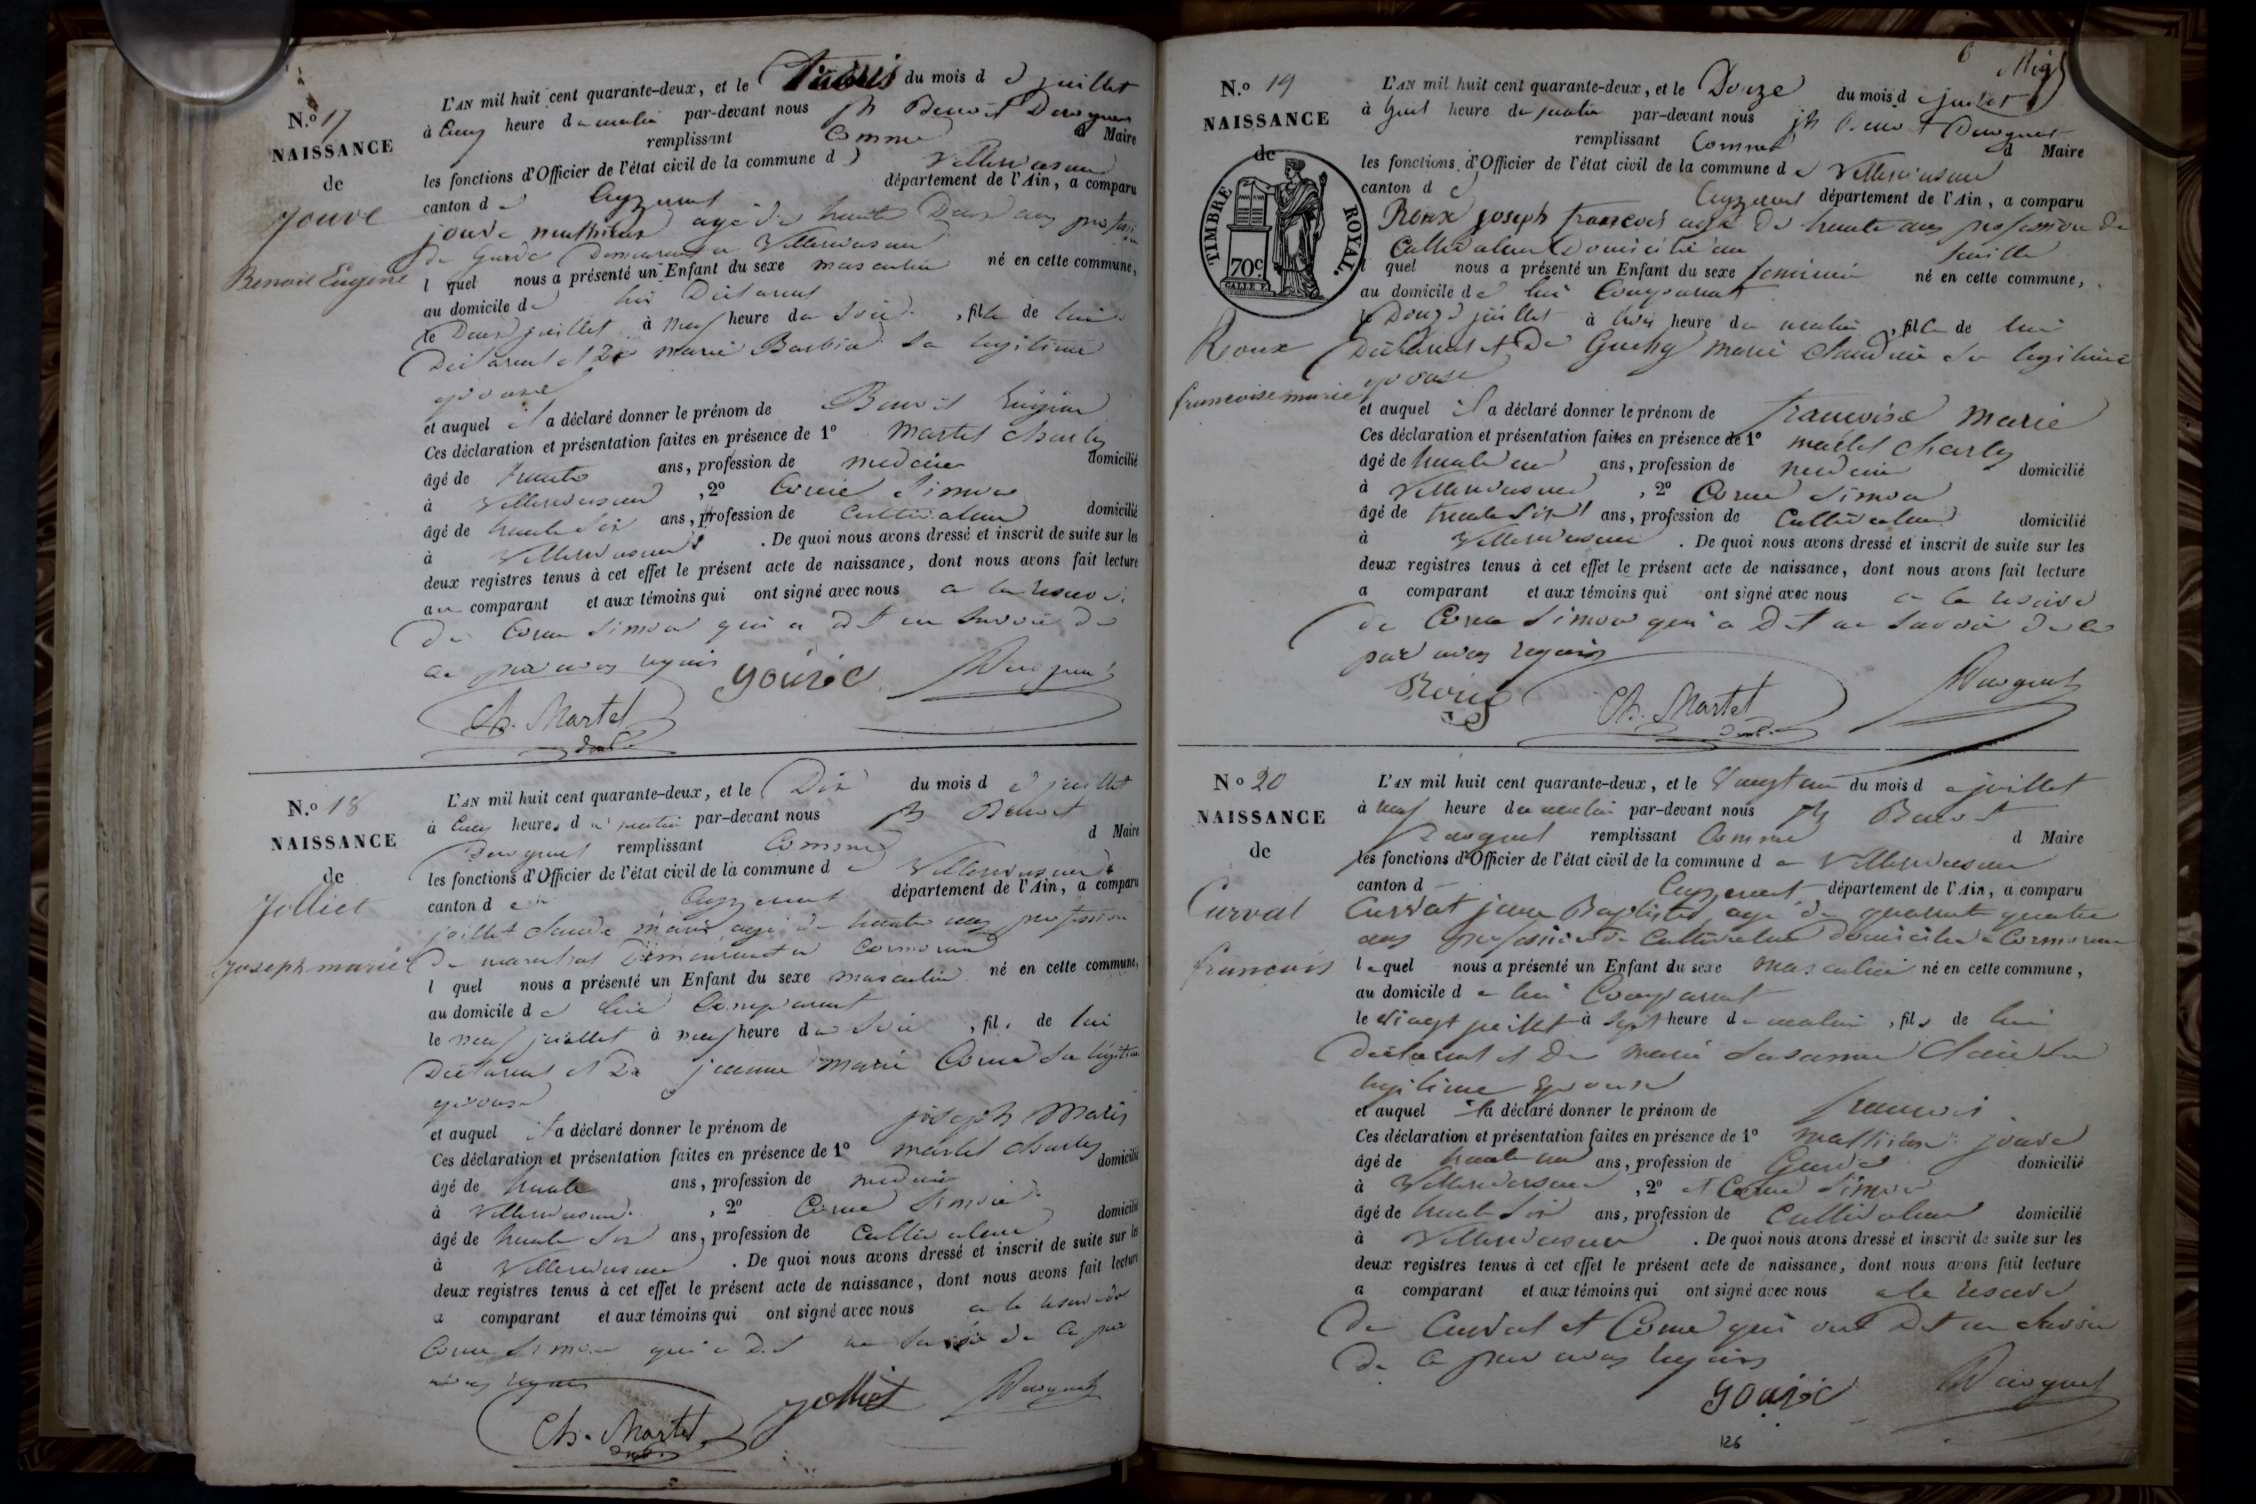 N.º 17
NAISSANCE
de
jouve
Benoit Eugène
L'AN mil huit cent quarante-deux, et le du mois d e juillet
à Cinq heure du matin par-devant nous jh Benoit
remplissant Comme d Maire
les fonctions d'Officier de l'état civil de la commune d
canton d e département de l'Ain, a comparu
jouve mathieu agé de trente Deux ans profession
de Garde Demeurant a
l quel nous a présenté un Enfant du sexe masculin né en cette commune,
au domicile de lui Déclarant
le Deux juillet à neuf heure du Soir, fils de lui
Déclarant et De marie Barbier Sa légitime
epouse
et auquel il a déclaré donner le prénom de Benoit Eugène
Ces déclaration et présentation faites en présence de 1º martel charles
âgé de trente ans, profession de medecin domicilié
à , 2º Corne Simon
âgé de trente Six ans, profession de Cultivateur domicilié
à . De quoi nous avons dressé et inscrit de suite sur les
deux registres tenus à cet effet le présent acte de naissance, dont nous avons fait lecture
au comparant et aux témoins qui ont signé avec nous a la reserve
De Corne Simon qui a dit ne Savoir De
ce par nous requis
jouve
Ch. Martel
N.º 18
NAISSANCE
de
Jolliet
joseph marie
L'AN mil huit cent quarante-deux, et le Dix du mois d e juillet
à Cinq heures d u matin par-devant nous jh Benoit
remplissant Comme d Maire
les fonctions d'Officier de l'état civil de la commune d e
canton d e département de l'Ain, a comparu
jolliet Claude marie agé de trente ans profession
De marechal Demeurant a Cormoran
l quel nous a présenté un Enfant du sexe masculin né en cette commune,
au domicile d e lui Comparant
le neuf juillet à neuf heure du Soir, fils de lui
Déclarant et De jeanne marie Corne Sa légitime
epouse
et auquel il a déclaré donner le prénom de joseph Marie
Ces déclaration et présentation faites en présence de 1º martel charles
âgé de trente ans, profession de medecin domicilié
à , 2º Corne Simon
âgé de trente Six ans, profession de Cultivateur domicilié
à . De quoi nous avons dressé et inscrit de suite sur les
deux registres tenus à cet effet le présent acte de naissance, dont nous avons fait lecture
a comparant et aux témoins qui ont signé avec nous a la reserve de
Corne Simon qui a Dit ne Savoir De Ce par
nous requis
Ch. Martel
jolliet
6
N.º 19
NAISSANCE
de
TIMBRE ROYAL
70c
Roux
francoise marie
L'AN mil huit cent quarante-deux, et le Douze du mois d e juillet
à huit heure du matin par-devant nous jh Benoit
remplissant Comme d Maire
les fonctions d'Officier de l'état civil de la commune d e
canton d e département de l'Ain, a comparu
Roux joseph francois agé de trente ans profession de
Cultivateur Domicilié au
l quel nous a présenté un Enfant du sexe feminin né en cette commune,
au domicile d e lui Comparant
le Douze juillet à trois heure du matin, fille de lui
Déclarant et De marie Claudine Sa légitime
epouse
et auquel il a déclaré donner le prénom de francoise Marie
Ces déclaration et présentation faites en présence de 1º martel charles
âgé de trente un ans, profession de medecin domicilié
à , 2º Corne Simon
âgé de trente Six ans, profession de Cultivateur domicilié
à . De quoi nous avons dressé et inscrit de suite sur les
deux registres tenus à cet effet le présent acte de naissance, dont nous avons fait lecture
a comparant et aux témoins qui ont signé avec nous a la reserve
de Corne Simon qui a Dit ne Savoir De ce
par nous requis
Roux
Ch. Martel
Nº 20
NAISSANCE
de
Curvat
francois
L'AN mil huit cent quarante-deux, et le Vingt un du mois d e juillet
à neuf heure du matin par-devant nous jh Benoit
remplissant Comme d Maire
les fonctions d'Officier de l'état civil de la commune d e
canton d département de l'Ain, a comparu
Curvat jean Baptiste agé de quarante quatre
ans profession de Cultivateur domicilié a Cormoran
lequel nous a présenté un Enfant du sexe masculin né en cette commune,
au domicile d e lui Comparant
le Vingt juillet à Sept heure du matin, fils de lui
Déclarant et De marie Susanne Sa
légitime Epouse
et auquel il a déclaré donner le prénom de francois
Ces déclaration et présentation faites en présence de 1º mathieu jouve
âgé de trente un ans, profession de Garde domicilié
à , 2º et Corne Simon
âgé de trente Six ans, profession de Cultivateur domicilié
à . De quoi nous avons dressé et inscrit de suite sur les
deux registres tenus à cet effet le présent acte de naissance, dont nous avons fait lecture
a comparant et aux témoins qui ont signé avec nous a la reserve
De Curvat et Corne qui ont Dit ne Savoir
De Ce par nous requis
jouve
126